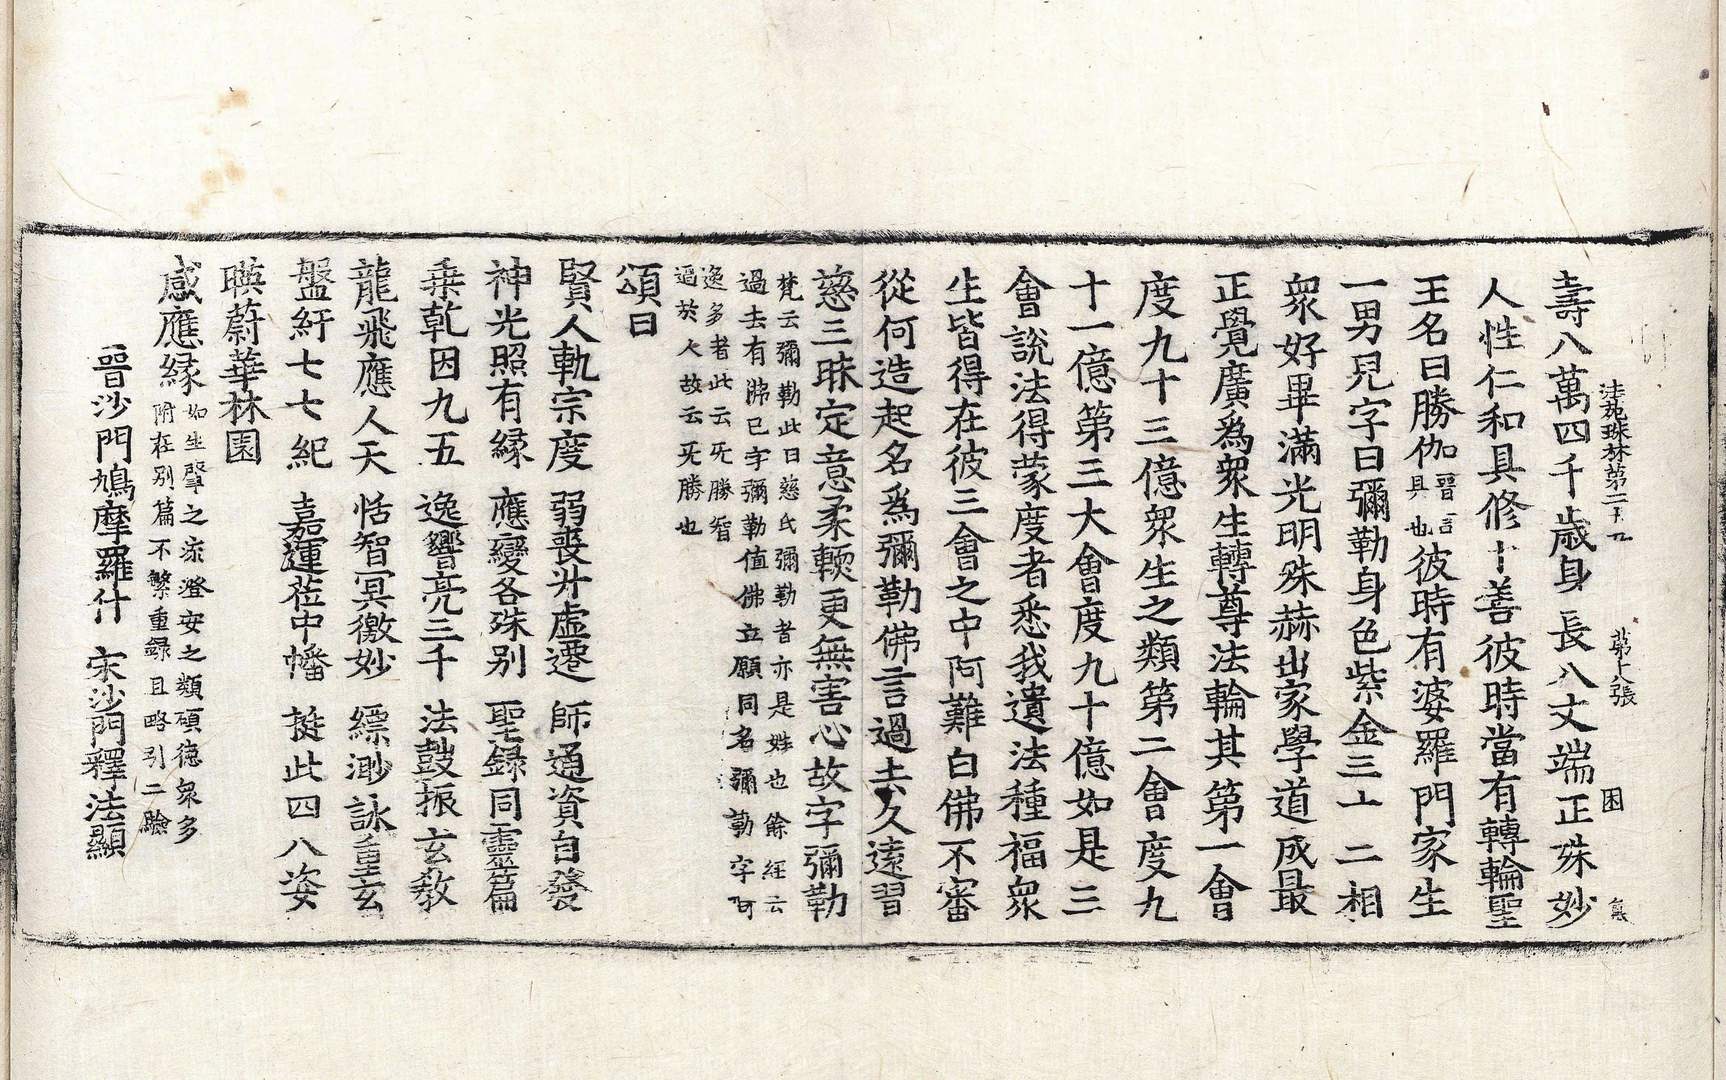 法苑珠林第二十九 第十八張 困
壽八萬四千歲身長八丈端正殊妙
人性仁和具修十善彼時當有轉輪聖
王名曰勝伽晉言具也彼時有婆羅門家生
一男兒字曰彌勒身色紫金三十二相
衆好畢滿光明殊赫出家學道成最
正覺廣爲衆生轉尊法輪其第一會
度九十三億衆生之類第二會度九
十一億第三大會度九十億如是三
會說法得蒙度者悉我遺法種福衆
生皆得在彼三會之中阿難白佛不審
從何造起名爲彌勒佛言過去久遠習
慈三昧定意柔輭更無害心故字彌勒
梵云彌勒此曰慈氏彌勒者亦是姓也餘經云
過去有佛已字彌勒值佛立願同名彌勒字阿
逸多者此云旡勝智
過於人故云旡勝也
頌曰
賢人軌宗度 弱喪升虛遷 師通資自發
神光照有緣 應變各殊別 聖錄同靈篇
乘乾因九五 逸響亮三千 法鼓振玄教
龍飛應人天 恬智冥徼妙 縹渺詠重玄
盤紆七七紀 嘉運莅中幡 挺此四八姿
暎蔚華林園
感應緣如生肇之流澄安之類碩德衆多
附在別篇不繁重錄且略引二驗
晉沙門鳩摩羅什 宋沙門釋法顯